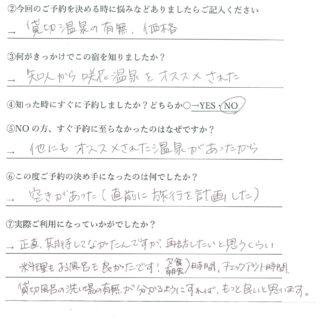 ②今回のご予約を決める時に悩みなどありましたらご記入ください
→ 貸切温泉の有無、価格
③何がきっかけでこの宿を知りましたか？
→ 知人から咲花温泉をオススメされた
④知った時にすぐに予約しましたか？どちらか○→YES・NO
⑤NO の方、すぐ予約に至らなかったのはなぜですか？
→ 他にもオススメされた温泉があったから
⑥この度ご予約の決め手になったのは何でしたか？
→ 空きがあった(直前に旅行を計画した)
⑦実際ご利用になっていかがでしたか？
→ 正直、期待してなかたんですが、再訪したいと思うくらい
お料理もお風呂も良かったです！ 時間、チェックアウト時間
貸切風呂の洗い場の有無が分かるようにすれば、もっと良いと思います。